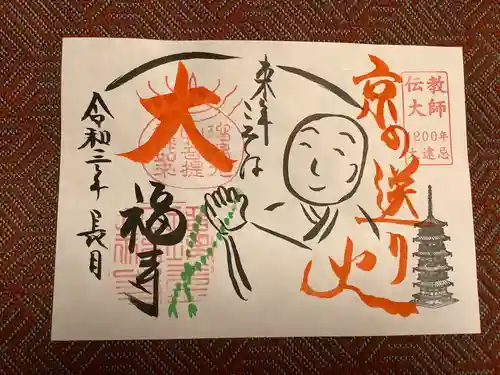 伝教
大師
1200年
大遠忌
京の送り火
来年
こそは
大
福寺
令和三年 長月